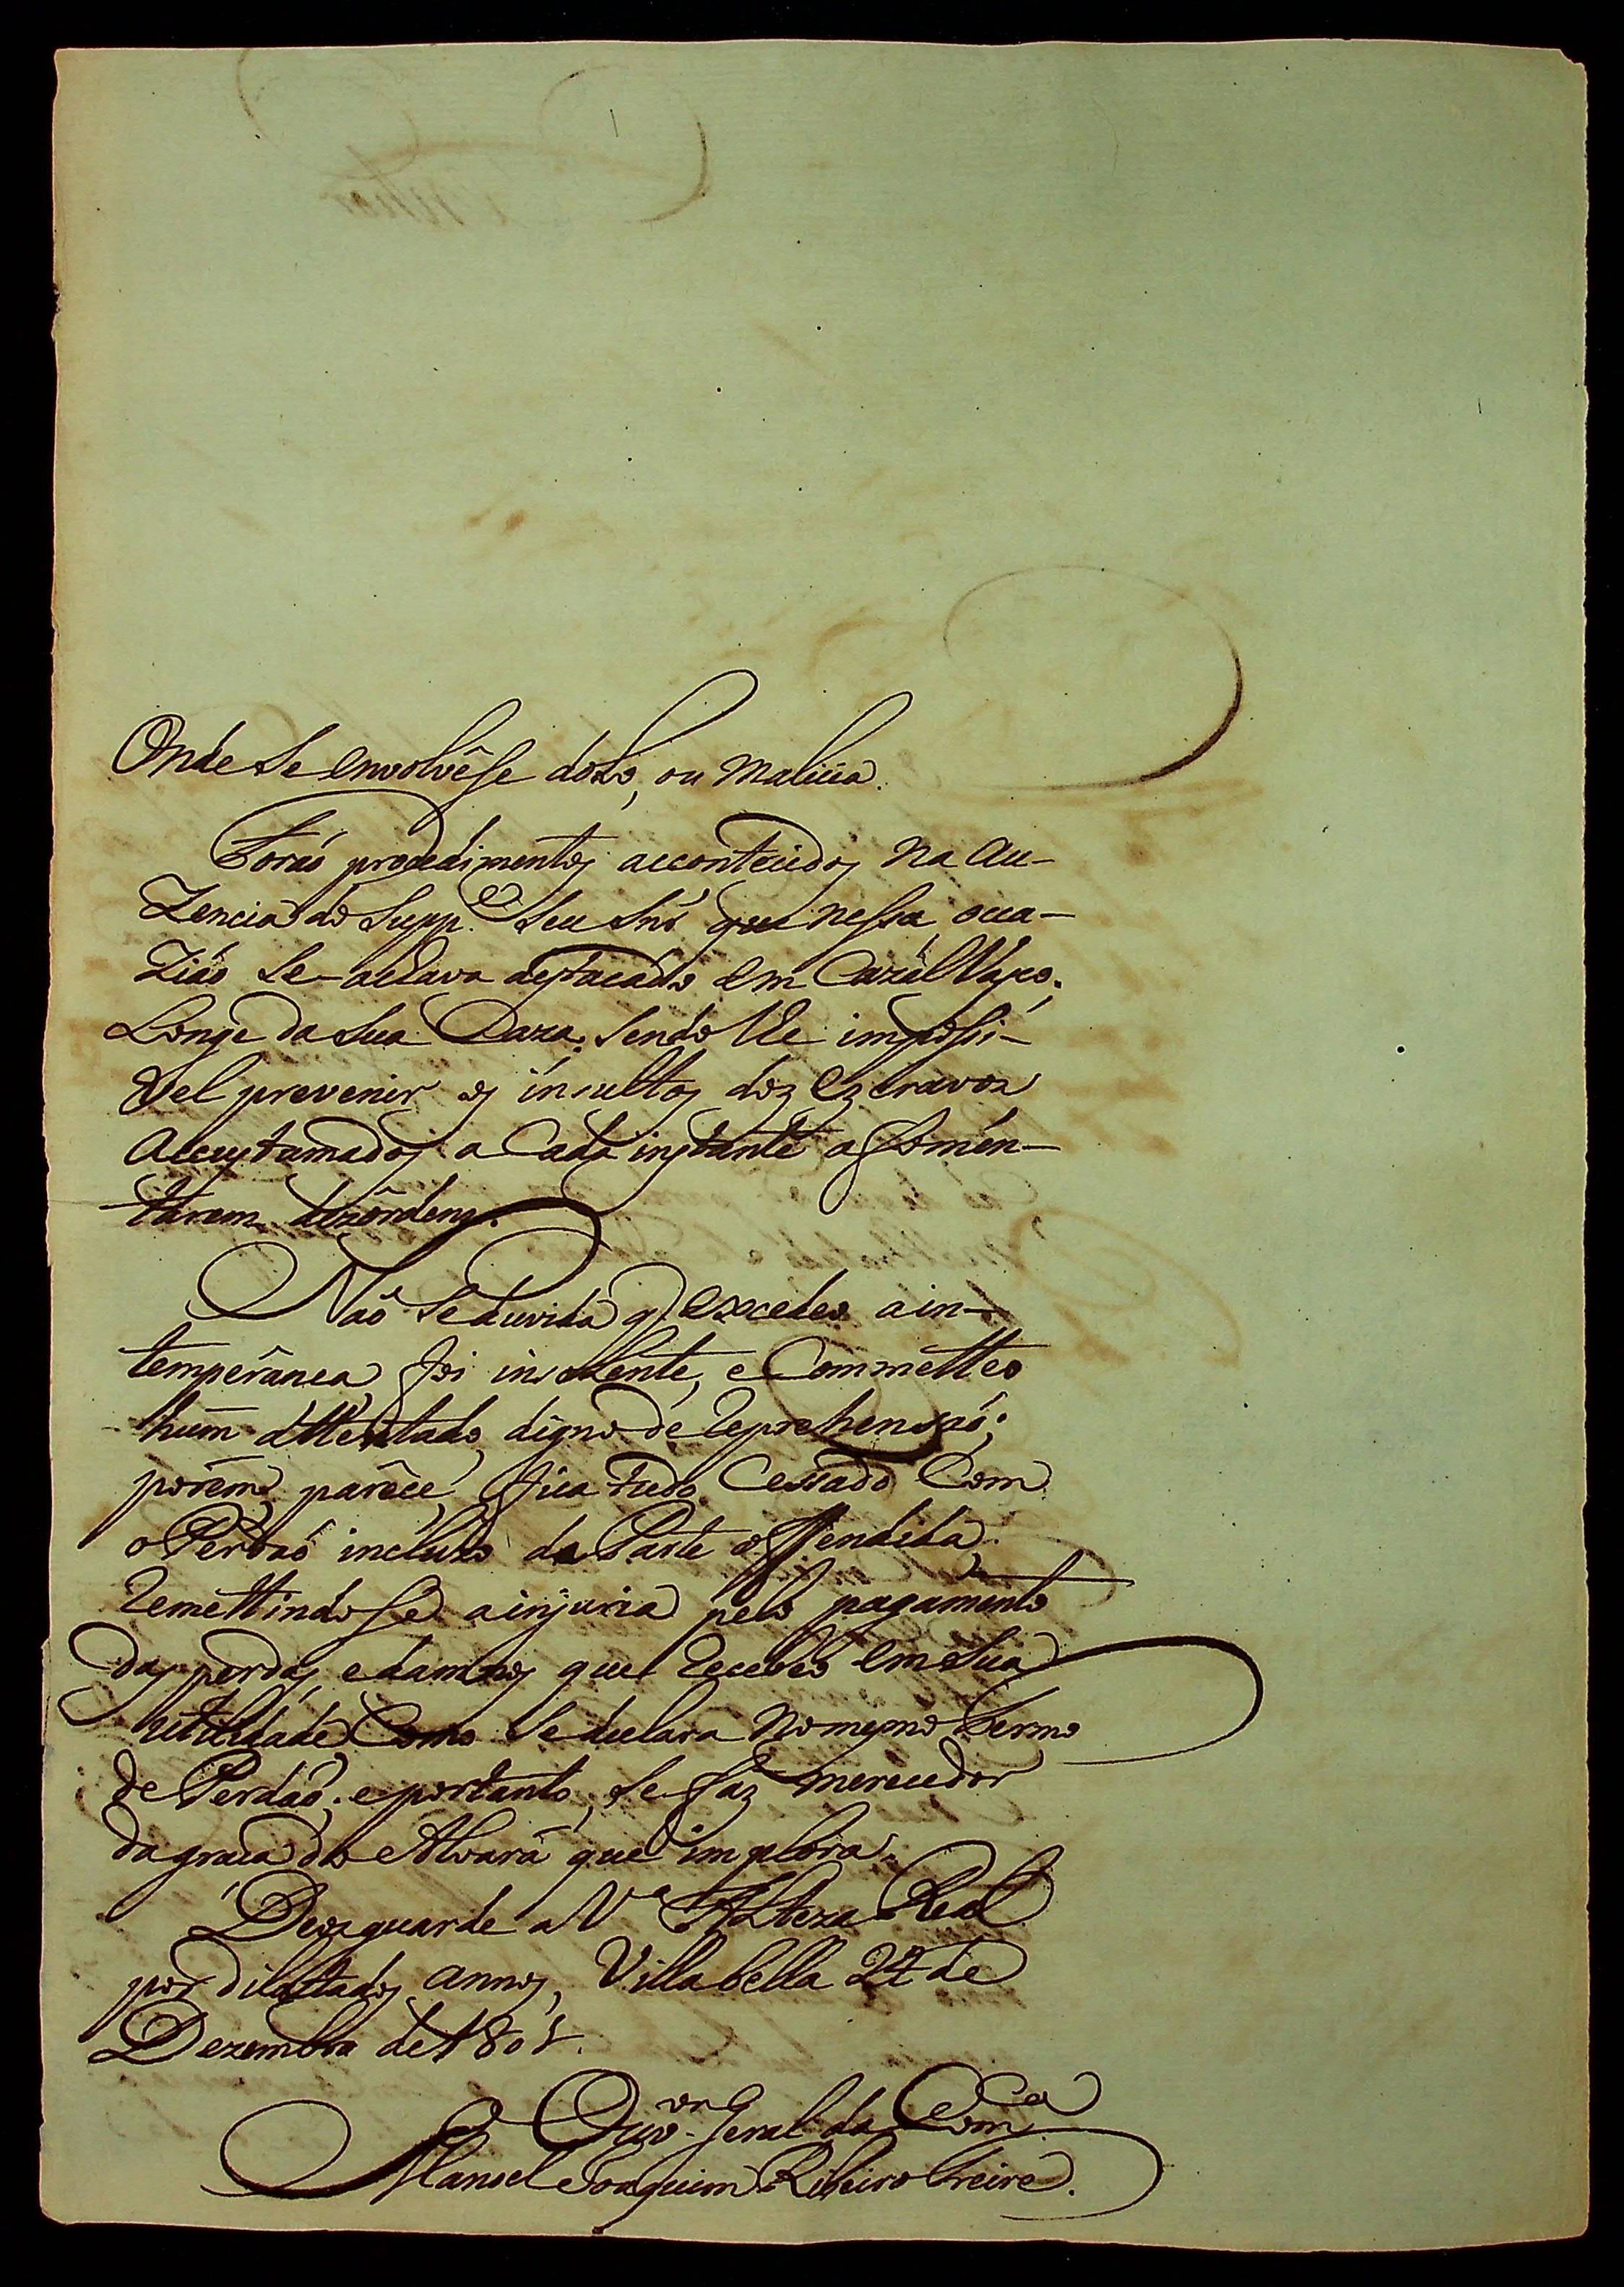 Onde se envolvêse dolo, ou malicia.
Foraõ procedimentos accontecidos na Au-
zencia do Supp.e seu Snr que nessa occa-
ziaõ se achava destacado em Cazal Vasco,
Longe da sua Caza, sendo lhe impossi-
vel prevenir os insultos dos Escravos
accustumados a cada instante a fomen-
tarem dezordens.
Naõ se duvida q. excedeo a in-
temperança, foi insolente, e Commetteo
hum attentado, digno de reprehensaõ;
porêm parêce, fica tudo Cessado Com
o Perdaõ incluzo da Parte offendida,
remettindose a injuria pelo pagamento
das perdas, e damnos que recebeo em sua
utilidade Como se declara no mesmo termo
de Perdaõ, e portanto, se faz merecedor
da graça do Alvará que implora.
Deos guarde a V.a Alteza Real
por dilattados annos, Villa bella 24 de
Dezembro de 1801.
O Ouv.or Geral da Com.ca
Manoel Joaquim Ribeiro Freire.